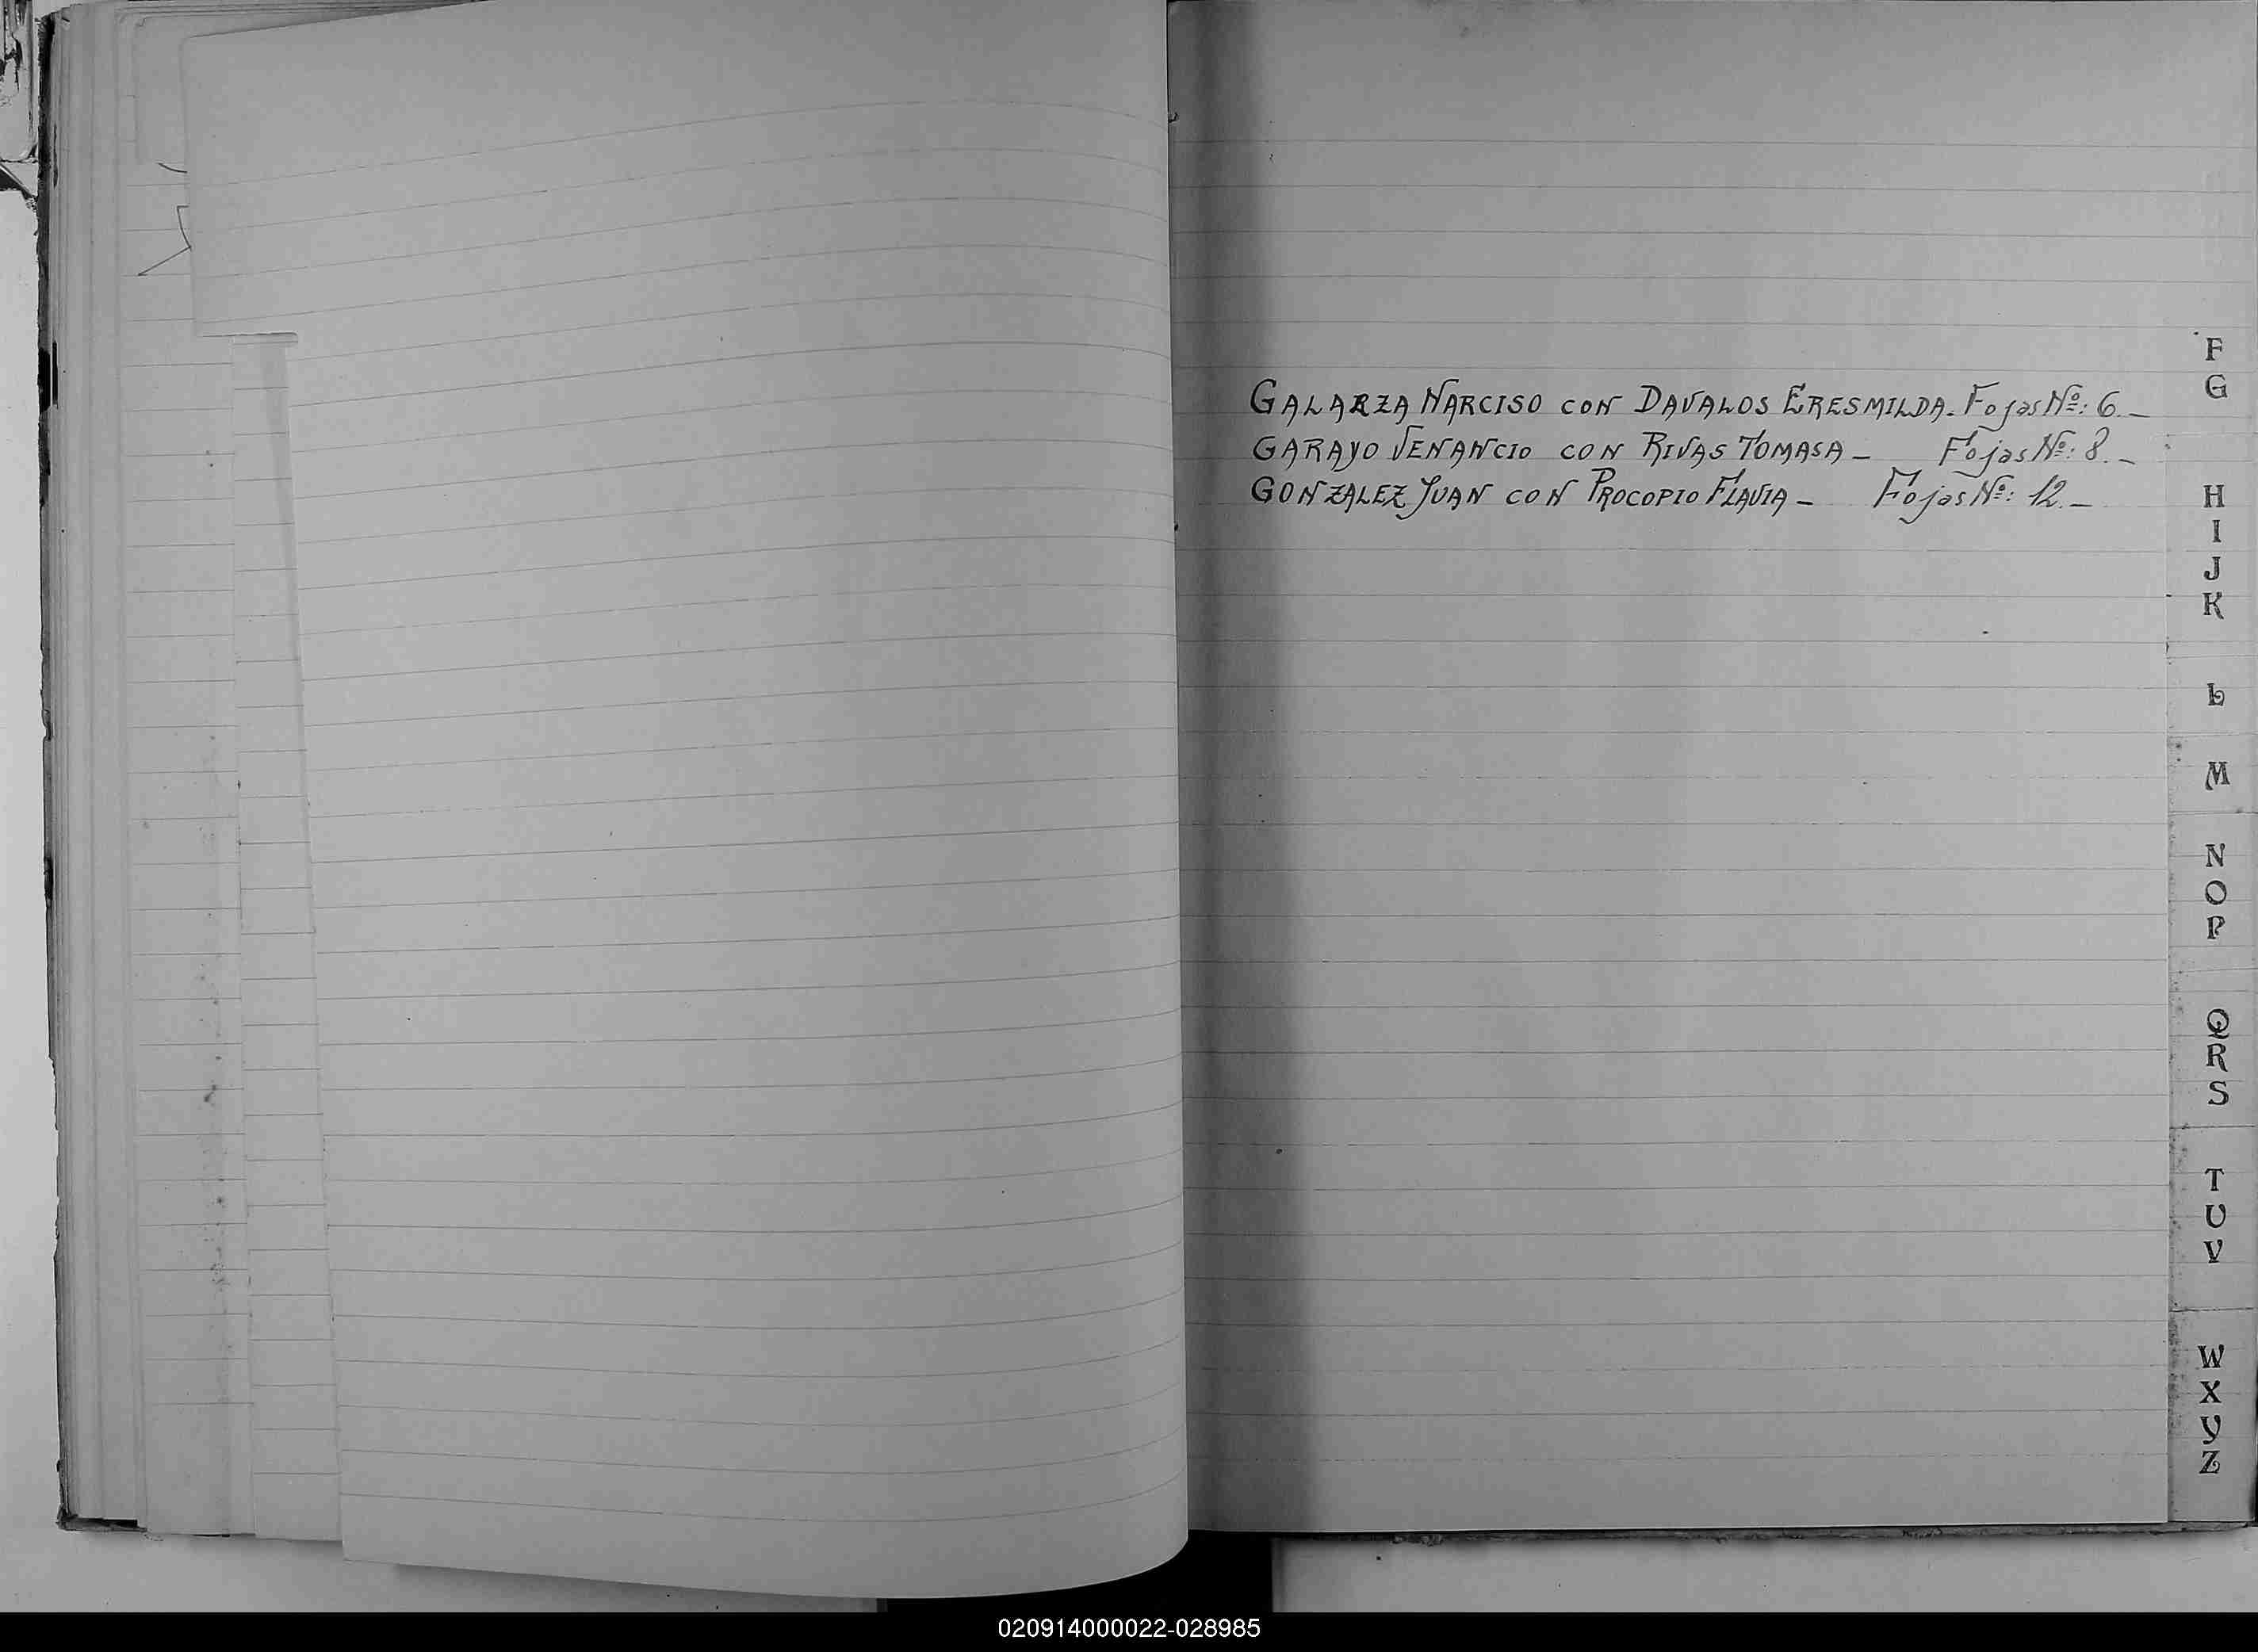 GALARZA NARCISO CON DAVALOS ERESMILDA. Fojas Nº: 6.—
GARAYO VENANCIO CON RIVAS TOMASA — Fojas Nº: 8.—
GONZALEZ JUAN CON PROCOPIO FLAVIA — Fojas Nº: 12.—
F
G
H
I
J
K
L
M
N
O
P
Q
R
S
T
U
V
W
X
Y
Z
020914000022-028985